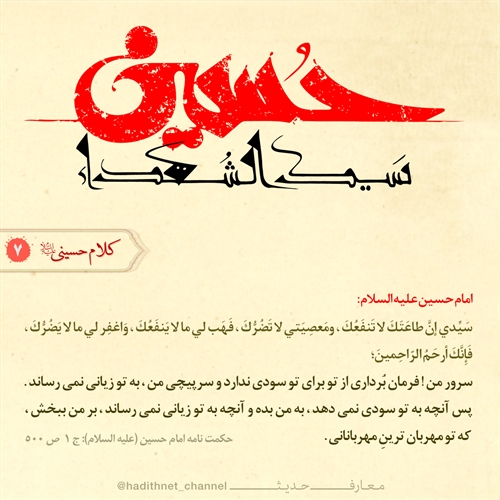 حسین
سید الشهداء
کلام حسینی علیه السلام ۷
امام حسین علیه السلام:
سَیِّدي إنَّ طاعَتَكَ لا تَنفَعُكَ ، ومَعصِیَتي لا تَضُرُّكَ ، فَهَب لي ما لا یَنفَعُكَ ، وَاغفِر لي ما لا یَضُرُّكَ ،
فَإِنَّكَ أرحَمُ الرّاحِمینَ؛
سرور من ! فرمان بُرداری از تو برای تو سودی ندارد و سرپیچی من ، به تو زیانی نمی رساند .
پس آنچه به تو سودی نمی دهد ، به من بده و آنچه به تو زیانی نمی رساند ، بر من ببخش ،
که تو مهربان ترینِ مهربانانی . حکمت نامه امام حسین (علیه السلام): ج ۱ ص ۵۰۰
معارف حدیث @hadithnet_channel